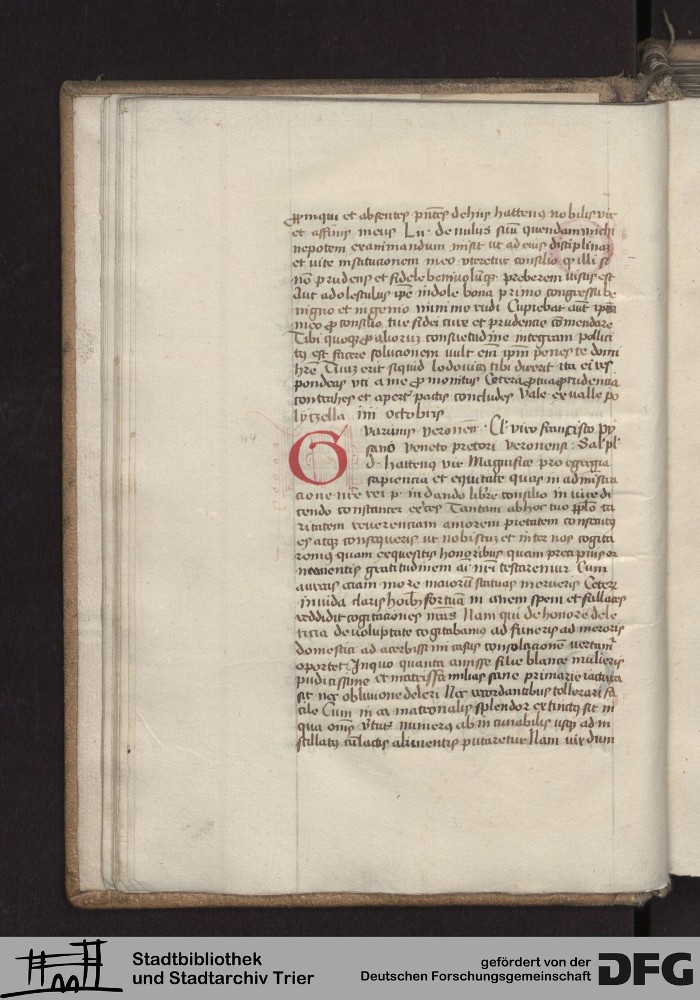 et absentes hactenus nobilis vir
et affinis meus Lu. de nulus suum quendam michi
nepotem examinandum misit ut ad eius disciplinam
et vite institucionem meo uteretur consilio illi si
non prudens et fidele preberem visus est
Aut adolestulus ipse indole bona primo congressu be
nigno et ingenio minime rudi Cupiebat aut ipsum
meo consilio tue fidei cure et prudencie comendare
Tibi quoque aliorum consuetudine integram pollici
tus est facere solucionem vult eni ipsum penes te domi
hre Tuum erit siquid lodovicus tibi dixerit ita ei res
pondeas uti a me monitus Cetera tua prudencia
contrahes et pactis concludes Vale ex valle po
lyczella iiii octobris
Guarinus veronen Cl. viro francisco py
sano veneto pretori veronensi Sal pl
d. hactenus vir Magnifice pro egregia
sapiencia et equitate quas in administra
cione nre rei p. in dando libre consilio in
cendo constanter Tantam ab hoc tuo pplo ca
ritatem reverenciam amorem pietatem consecutus
es atque consequeris ut nobiscum et inter nos cogita
remus quam exquisitis honoribus quam precipuis or
namentis gratitudinem ai nri testaremur Cum
aureas eciam more maiorum statuas merueris Ceterum
invida claris hoib fortuna inanem spem et fallaces
reddidit cogitaciones nras Nam qui de honore de le
ticia de voluptate cogitabamus ad funeris ad meroris
domestici ad acerbissimi casus consolacionem vertamur
oportet Inquo quanta amisse filie blance mulieris
pudicissime et matrisfamilias sane primarie iactura
sit nec oblivione deleri Nec recordantibus tollerari fa
cile Cum in ea matronalis splendor extinctus sit in
qua omis vtutis numerus ab incunabilis usque ad in
stillatis lactis alimentis putaretur Nam vix dum
44
Stadtbibliothek
und Stadtarchiv Trier
gefördert von der
Deutschen Forschungsgemeinschaft
DFG